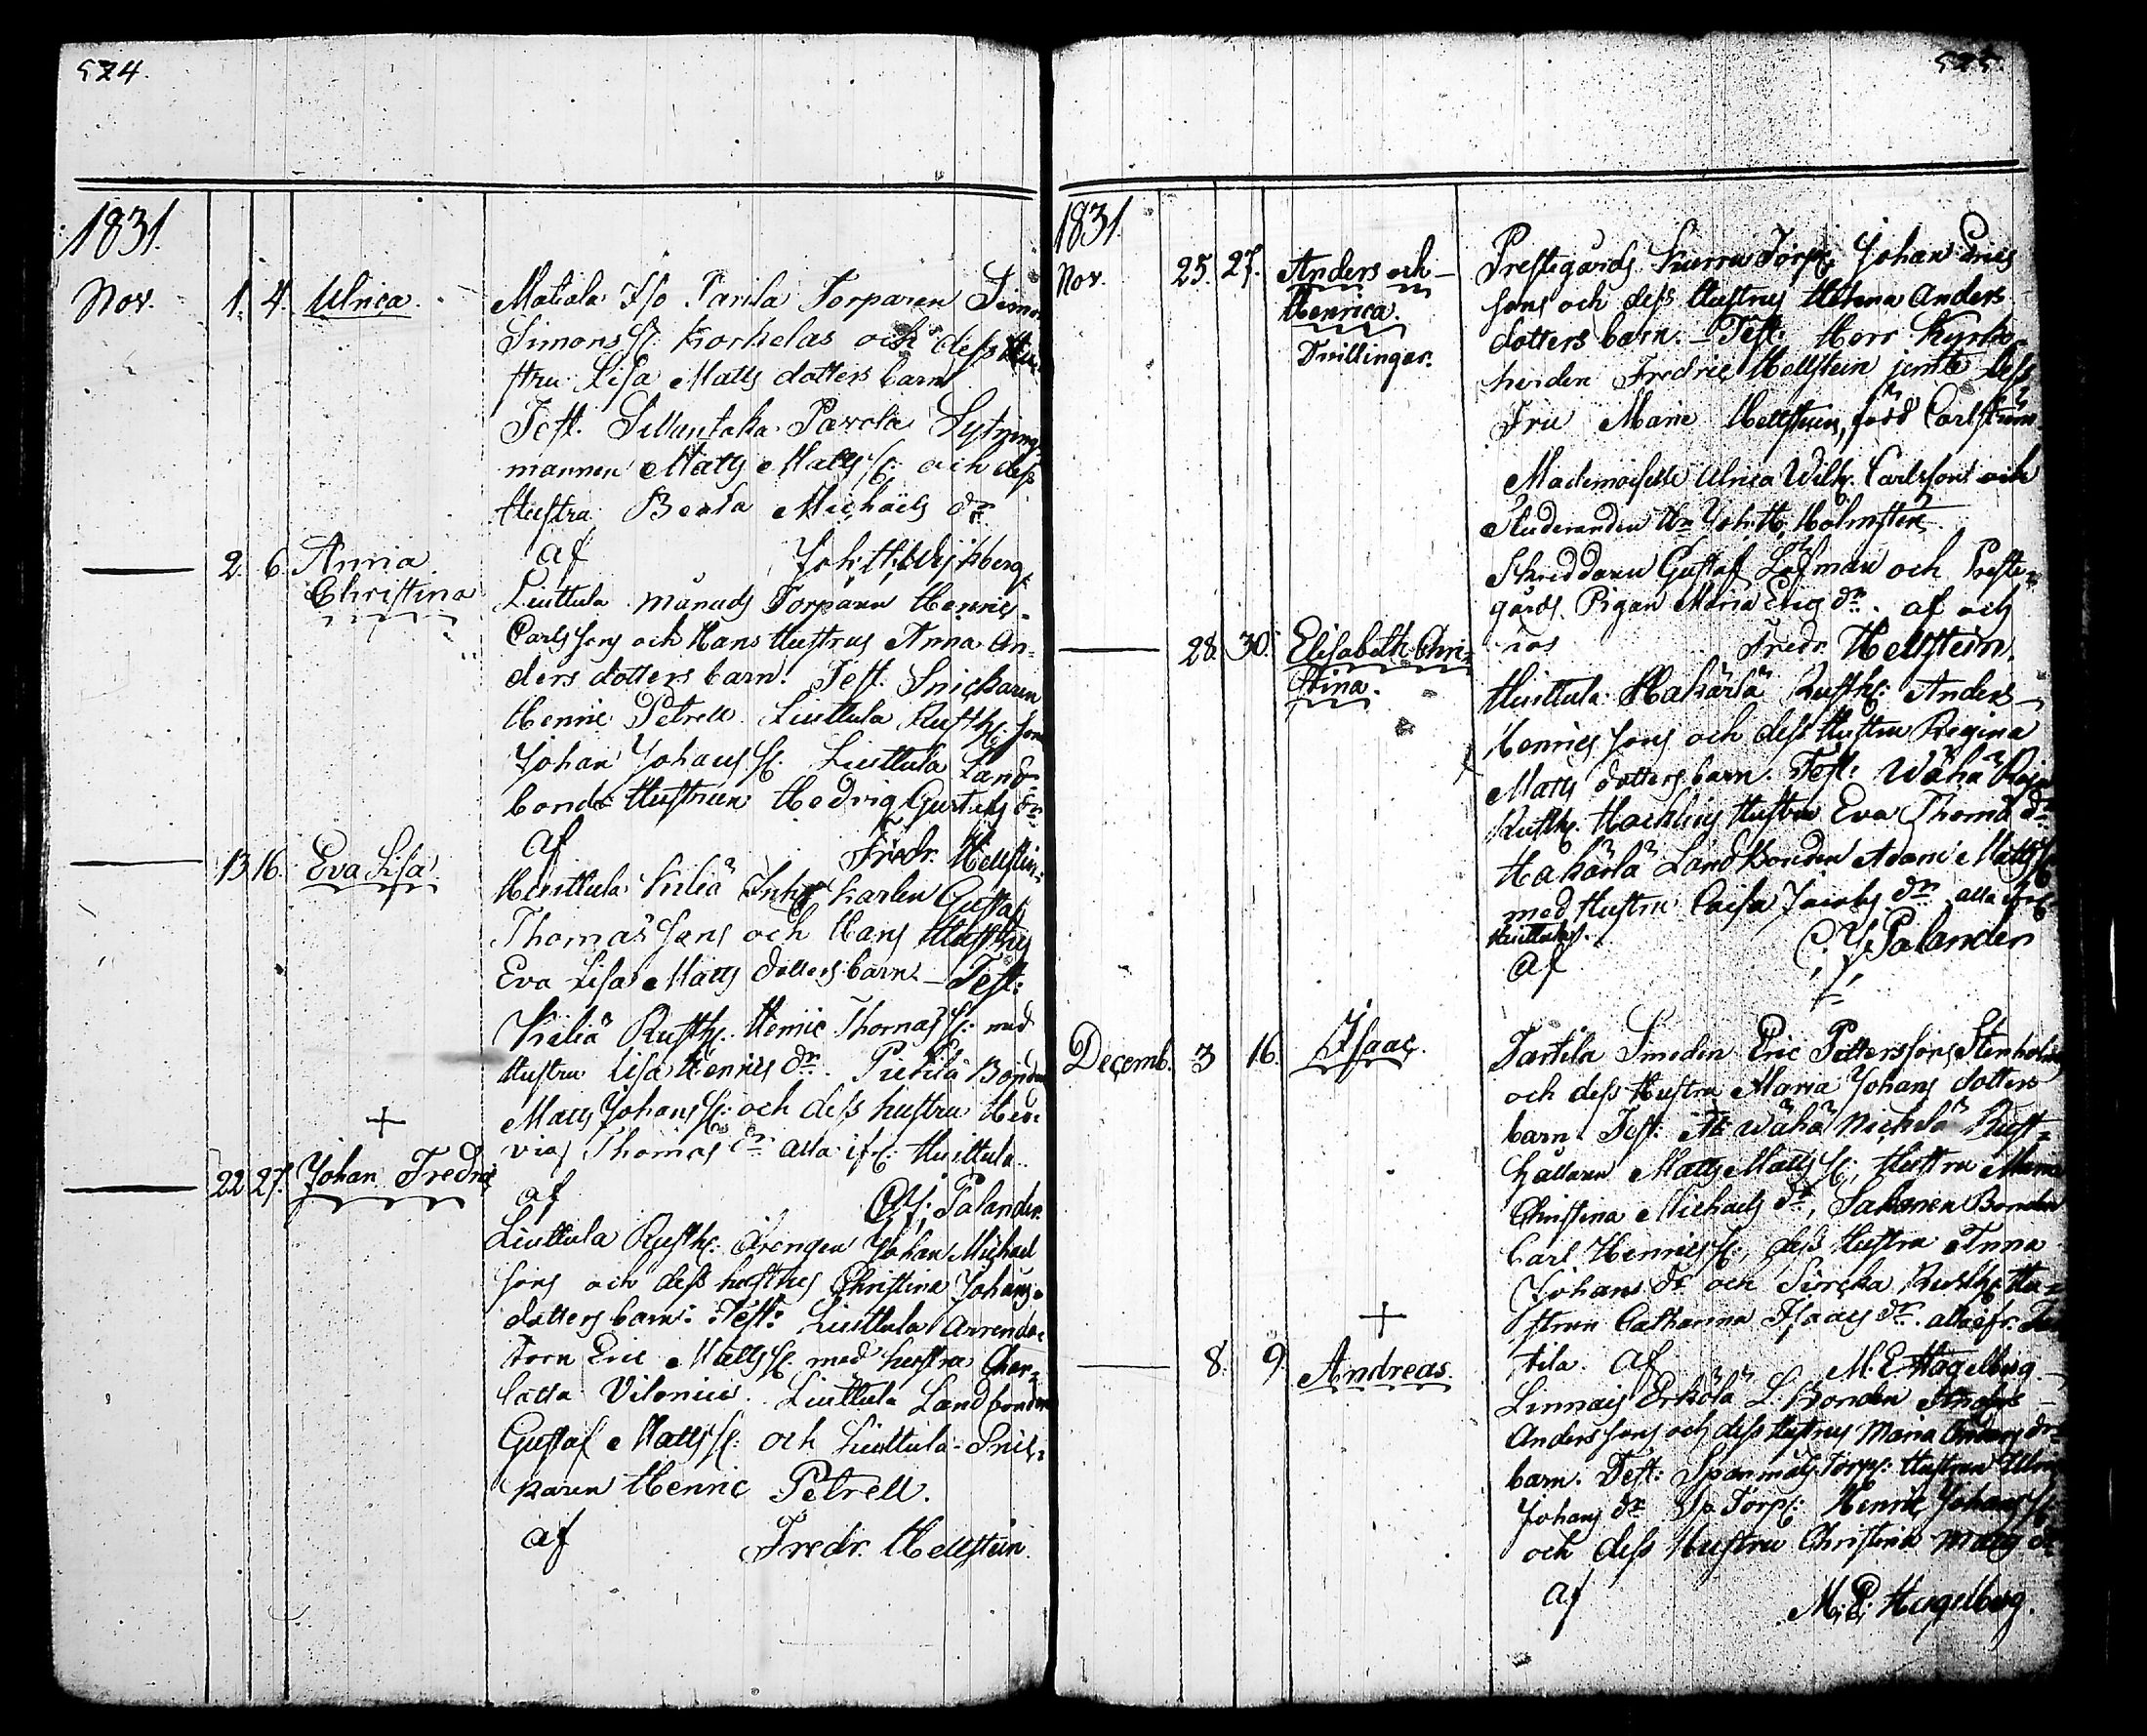 524.
1831.
Nov. 1. 4. Ulrica.
Matiala Torparen Simon
Simons S: Korkelas och dess Hu
stru Lisa Matts dotters barn
Test. Sillantaka Pavola
mannen Matts Matts S: och dess
Hustru Beata Michaels dr
af Joh. H. Wijkberg
2. 6. Anna
Christina
Liuttula månads Torparen Henric
Carls sons och Hans Hustrus Anna An=
ders dotters barn. Test. Snickaren
Henric Petrell. Liuttula Rusth: son
Johan Johans S: Liuttula Land
bonde Hustrun Hedvig Gustafs dr
af Fredr. Hellstein.
13. 16. Eva Lisa.
Huittula Kiliä Inhs karlen Gustaf
Thomas sons och Hans Hustrus
Eva Lisa Matts dotters barn. – Test:
Kiliä Rusth: Henric Thomas S: med
Hustru Lisa Henrics dr. Pietilä Bonden
Matts Johans S: och dess hustru Hed
vig Thomas dr alla ifr: Huittula.
af C. J. Palander.
+
22 27. Johan Fredric
Liuttula Rusth: drengen Johan Michael
sons och dess hustrus Christina Johans
dotters barn. Test: Liuttula Arrenda=
torn Eric Matts S: med hustru Char=
lotta Vilenius. Liuttula Landbonden
Gustaf Matts S: och Liuttula Snic=
karen Henric Petrell.
af Fredr. Hellstein.
525.
1831.
Nov. 25. 27. Anders och
Henrica.
Tvillingar.
Prestegårds Torp: Johan Erics
sons och dess Hustrus Helena Anders
dotters barn. – Test: Herr Kyrko
herden Fredric Hellstein jemte dess
Fru Marie Hellstein, född Carlström
Mademoiselle Ulrica Wilh: Carlsson och
Studeranden Hr Joh: H. Holmsten
Skreddaren Gustaf Löfman och Preste=
gårds Pigan Maria Eric dr. af och
hos Fredr. Hellstein.
28. 30. Elisabeth Chri=
stina.
Huittula Hakärlä Rusth: Anders
Henrics sons och dess Hustru Regina
Matts dotters barn. Test: Wähä
Rusth: Hustru Eva Thomæ dr
Hakärlä Landbonden Adam Matts S:
med Hustru Caisa Jacobs dr alla ifr:
Huittula.
af C. J. Palander
Decemb. 3 16. Isaac.
Tarttila Smeden Eric Pettersson Stenholms
och dess Hustru Maria Johans dotters
barn. Test: Wähä Nickelä Rust=
hållaren Matts Matts S:, Hustru Maria
Christina Michaels dr, Sakonen Bonden
Carl Henrics S:, dess Hustru Anna
Johans dr och Sircka Rusth: Hu=
strun Catharina Isaacs dr. alla ifr.
tila. af M. E. Hagelberg.
+
8. 9 Andreas.
Linnais Erkölä L. Bonden Anders
Anders sons och dess Hustrus Maria Anders dr
barn. Test: Torp: Hustrun
Johans dr Torp: Henric Johans S:
och dess Hustru Christina Matts dr
af M. E. Hagelberg.